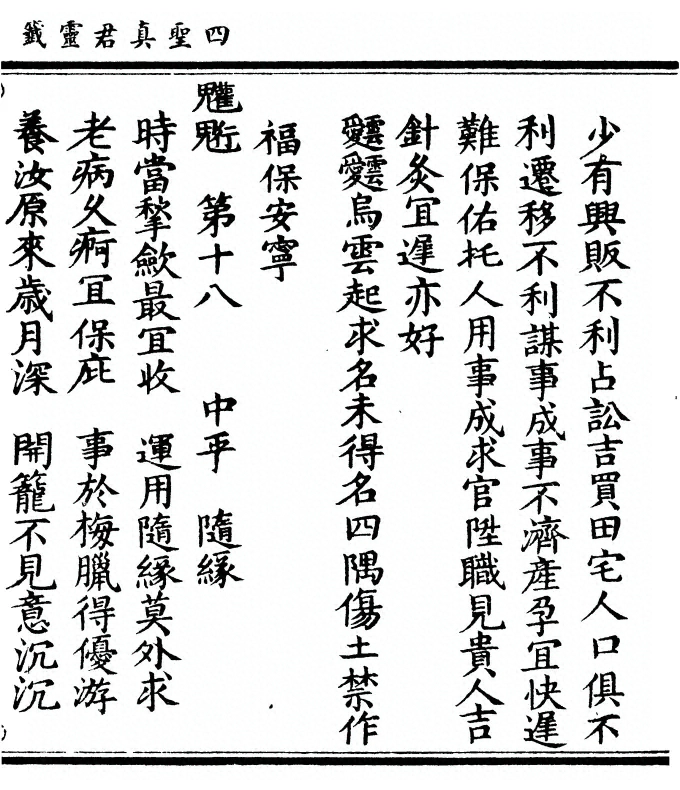 四聖真君靈籤
少有興販不利占訟吉買田宅人口俱不
利遷移不利謀事成事不濟產孕宜快遲
難保佑托人用事成求官陞職見貴人吉
針灸宜遲亦好
靉靆烏雲起求名未得名四隅傷土禁作
福保安寧
第十八 中平 隨緣
時當斂最宜收 運用隨緣莫外求
老病久痾宜保庇 事於梅臘得優游
養汝原來歲月深 開籠不見意沉沉